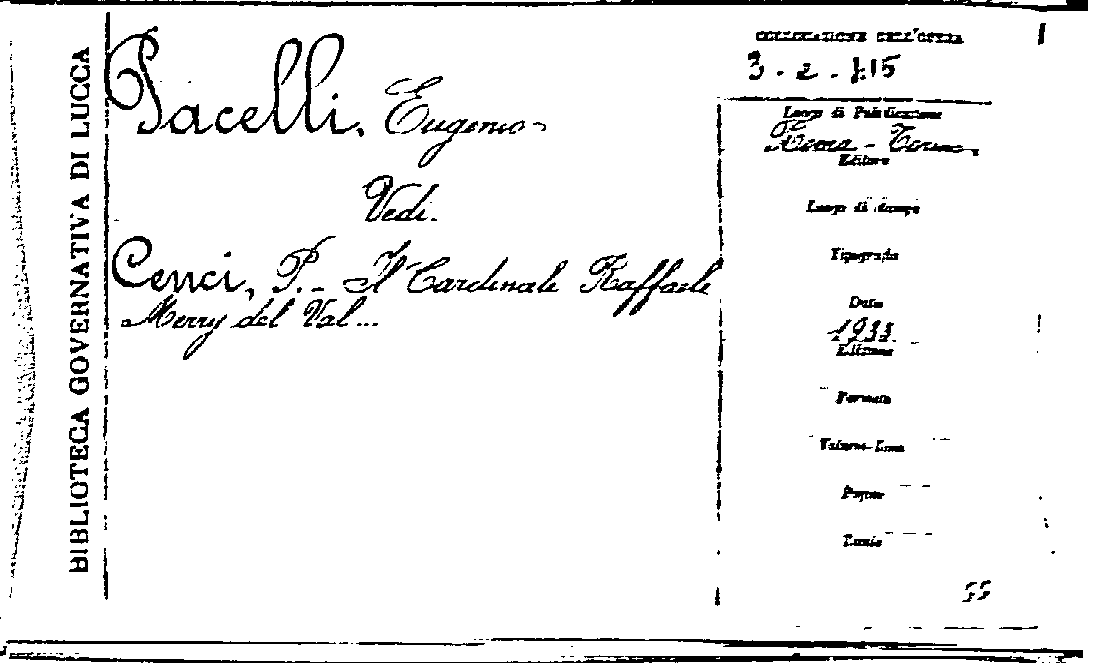 BIBLIOTECA GOVERNATIVA DI LUCCA
Pacelli, Eugenio-
Vedi.
Cenci, P. - Il Cardinale Raffaele
Merry del Val...
COLLOCAZIONE DELL'OPERA
3-2-
Luogo di Pubblicazione
Roma - Torino.
Editore
Luogo di stampa
Tipografia
Data
1933
Edizione
Formato
Volume-
Pagine
Tavole